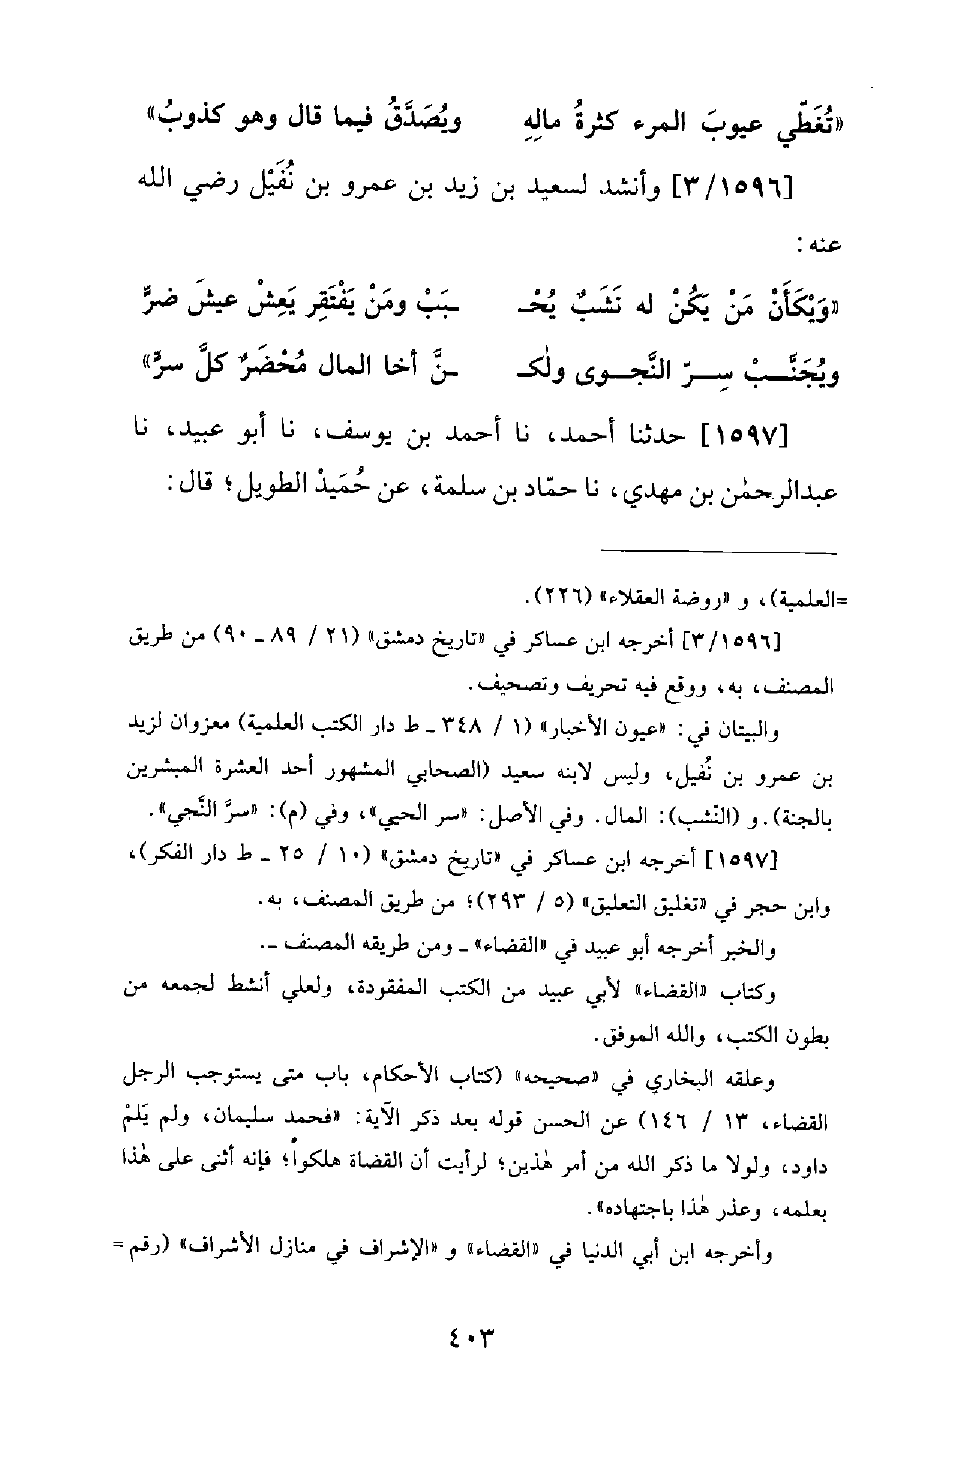 «تُغَطِّي عيوبَ المرء كثرةُ مالِهِ ويُصَدَّقُ فيما قال وهو كذوبُ»
[٣/١٥٩٦] وأنشد لسعيد بن زيد بن عمرو بن نُفَيْل رضي الله
عنه:
«وَيْكَأَنْ مَنْ يَكُنْ له نَشَبٌ يُحْـ ـبَبْ ومَنْ يَفْتَقِر يَعِشْ عيشَ ضرٍّ
ويُجَنَّــبْ سِــرّ النَّجـوى ولكـ ـنَّ أخا المال مُحْضَرٌ كلَّ سرٍّ»
[١٥٩٧] حدثنا أحمد، نا أحمد بن يوسف، نا أبو عبيد، نا
عبدالرحمٰن بن مهدي، نا حمّاد بن سلمة، عن حُمَيْدْ الطويل؛ قال:
=العلمية)، و «روضة العقلاء» (٢٢٦).
[٣/١٥٩٦] أخرجه ابن عساكر في «تاريخ دمشق» (٢١ / ٨٩ ـ ٩٠) من طريق
المصنف، به، ووقع فيه تحريف وتصحيف.
والبيتان في: «عيون الأخبار» (١ / ٣٤٨ ـ ط دار الكتب العلمية) معزوان لزيد
بن عمرو بن نُفيل، وليس لابنه سعيد (الصحابي المشهور أحد العشرة المبشرين
بالجنة). و (النَّشب): المال. وفي الأصل: «سر الحيي»، وفي (م): «سرَّ النَّجي».
[١٥٩٧] أخرجه ابن عساكر في «تاريخ دمشق» (١٠ / ٢٥ ـ ط دار الفكر)،
وابن حجر في «تغليق التعليق» (٥ / ٢٩٣)؛ من طريق المصنف، به.
والخبر أخرجه أبو عبيد في «القضاء» ـ ومن طريقه المصنف ـ.
وكتاب «القضاء» لأبي عبيد من الكتب المفقودة، ولعلي أنشط لجمعه من
بطون الكتب، والله الموفق.
وعلقه البخاري في «صحيحه» (كتاب الأحكام، باب متى يستوجب الرجل
القضاء، ١٣ / ١٤٦) عن الحسن قوله بعد ذكر الآية: «فحمد سليمان، ولم يَلُمْ
داود، ولولا ما ذكر الله من أمر هٰذين؛ لرأيت أن القضاة هلكوا؛ فإنه أثنى على هٰذا
بعلمه، وعذر هٰذا باجتهاده».
وأخرجه ابن أبي الدنيا في «القضاء» و «الإشراف في منازل الأشراف» (رقم =
٤٠٣